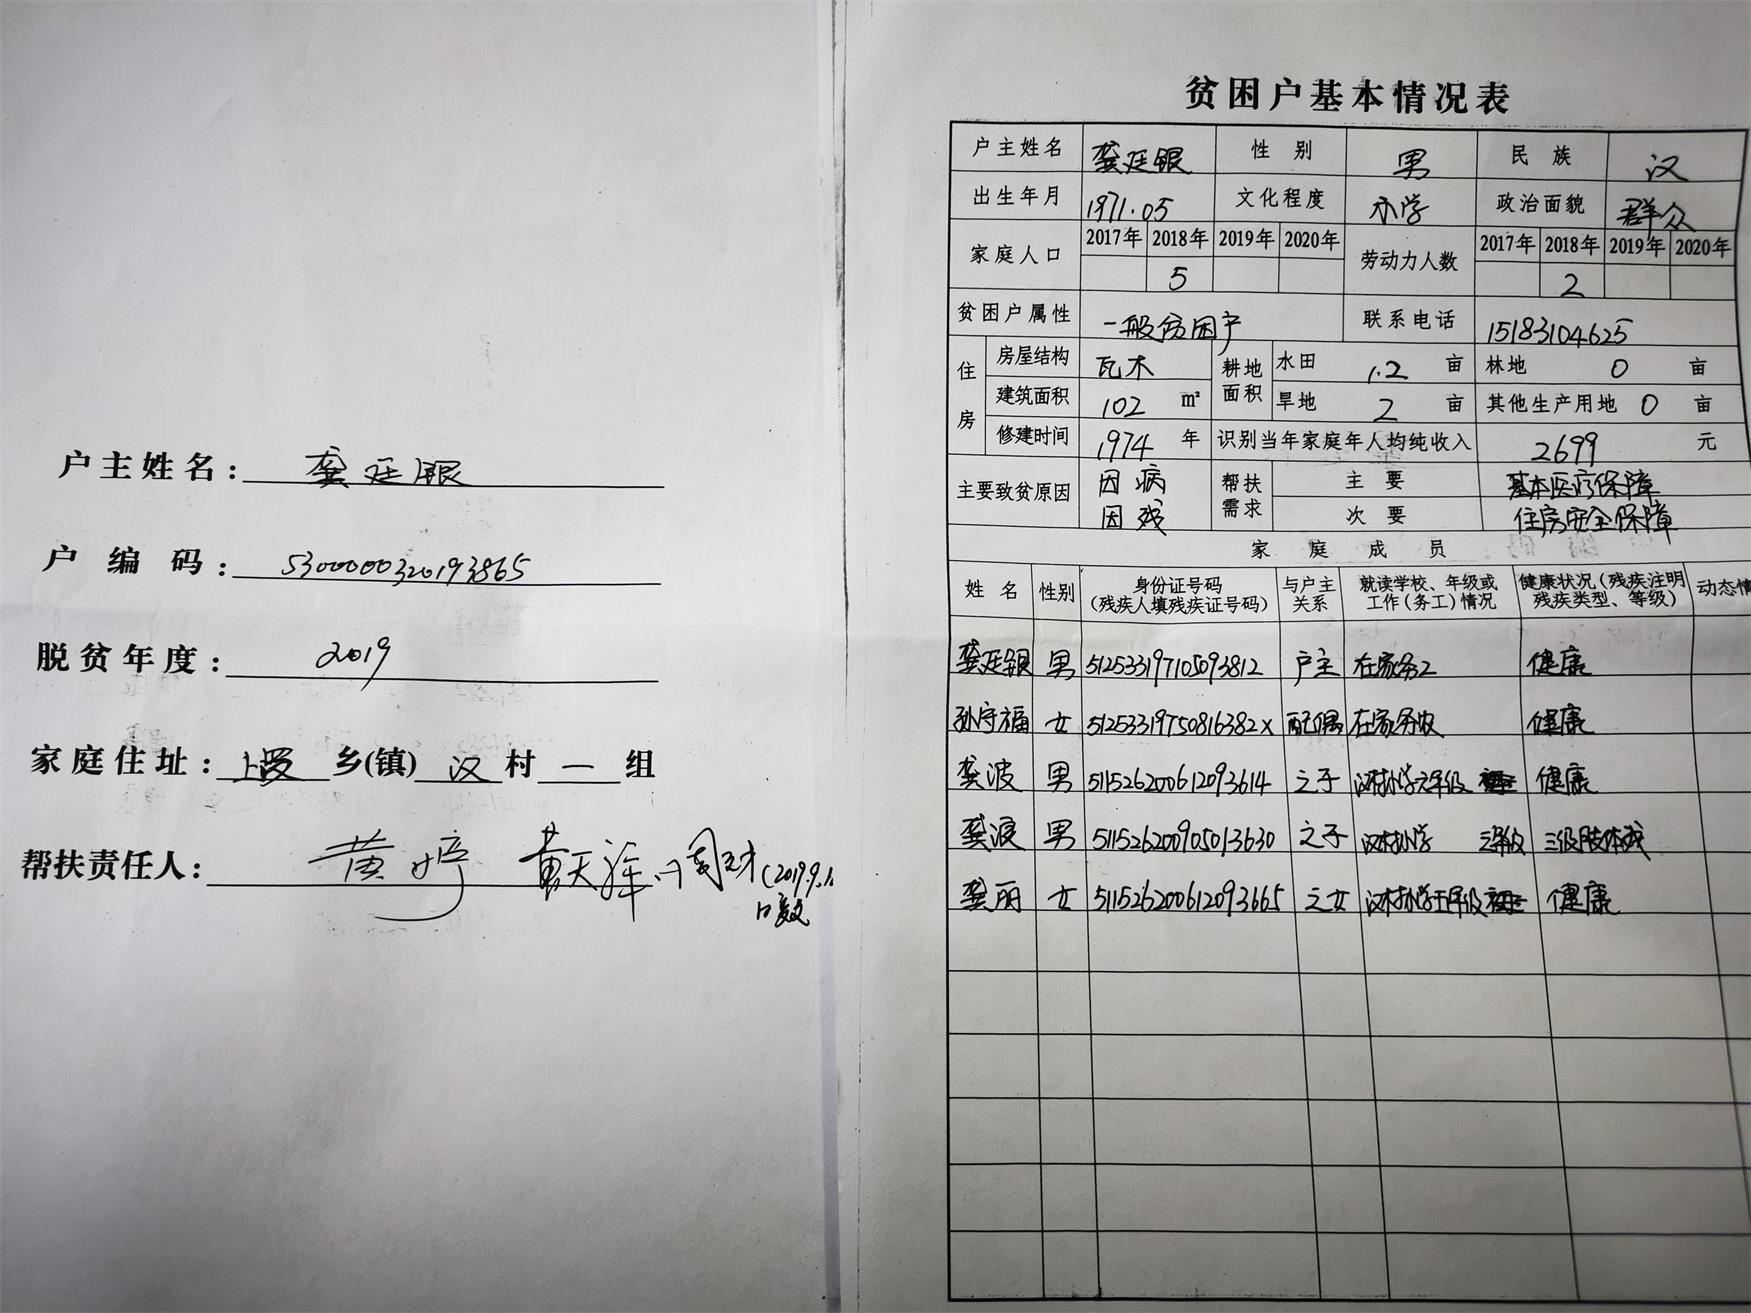 户主姓名：龚廷银
户编码：5300000320193865
脱贫年度：2019
家庭住址：上段乡(镇)汉村一组
帮扶责任人：黄婷 黄天 (2019.9.
贫困户基本情况表
户主姓名 龚廷银 性别 男 民族 汉
出生年月 1971.05 文化程度 小学 政治面貌 群众
家庭人口 2017年 2018年 2019年 2020年 劳动力人数 2017年 2018年 2019年 2020年
5 2
贫困户属性 一般贫困户 联系电话 15183104625
住房 房屋结构 瓦木 耕地面积 水田 1.2 亩 林地 0 亩
建筑面积 102 m² 旱地 2 亩 其他生产用地 0 亩
修建时间 1974 年 识别当年家庭年人均纯收入 2699 元
主要致贫原因 因病 帮扶需求 主要 基本医疗保障
因残 次要 住房安全保障
家庭成员
姓名 性别 身份证号码 与户主关系 就读学校、年级或 健康状况(残疾注明 动态情
(残疾人填残疾证号码) 工作(务工)情况 残疾类型、等级)
龚廷银 男 512533197105093812 户主 在家务工 健康
孙守福 女 51253319750816382X 配偶 在家务农 健康
龚波 男 511526200612093614 之子 汉村小学六年级 健康
龚浪 男 511526200905013630 之子 汉村小学 三年级 三级肢体残
龚丽 女 511526200612093665 之女 汉村小学五年级 健康